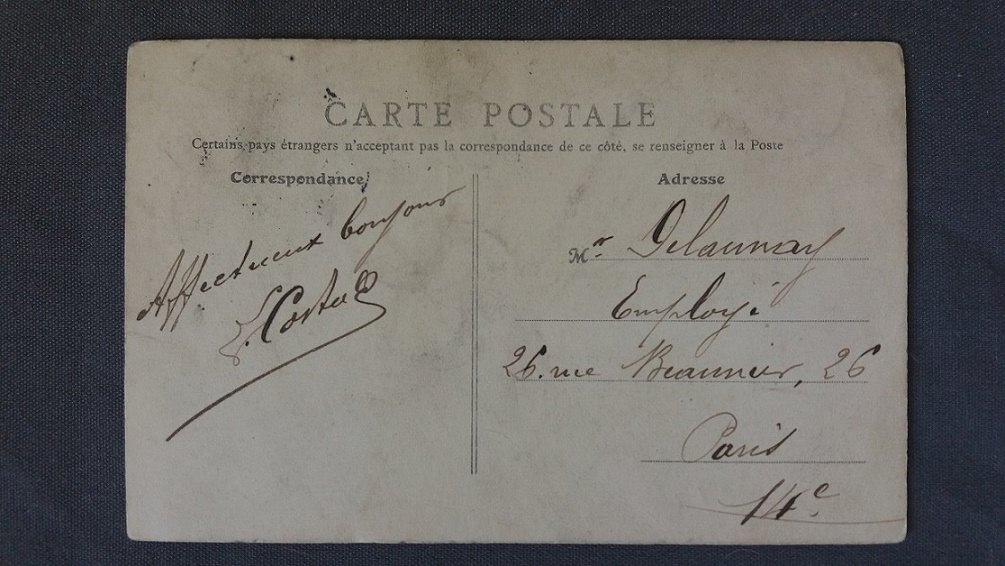 CARTE POSTALE
Certains pays étrangers n'acceptant pas la correspondance de ce côté, se renseigner à la Poste
Correspondance
Affectueux bonjour
Adresse
Mr. Delaunay
Employé
26. rue Beaunier, 26
Paris
14e